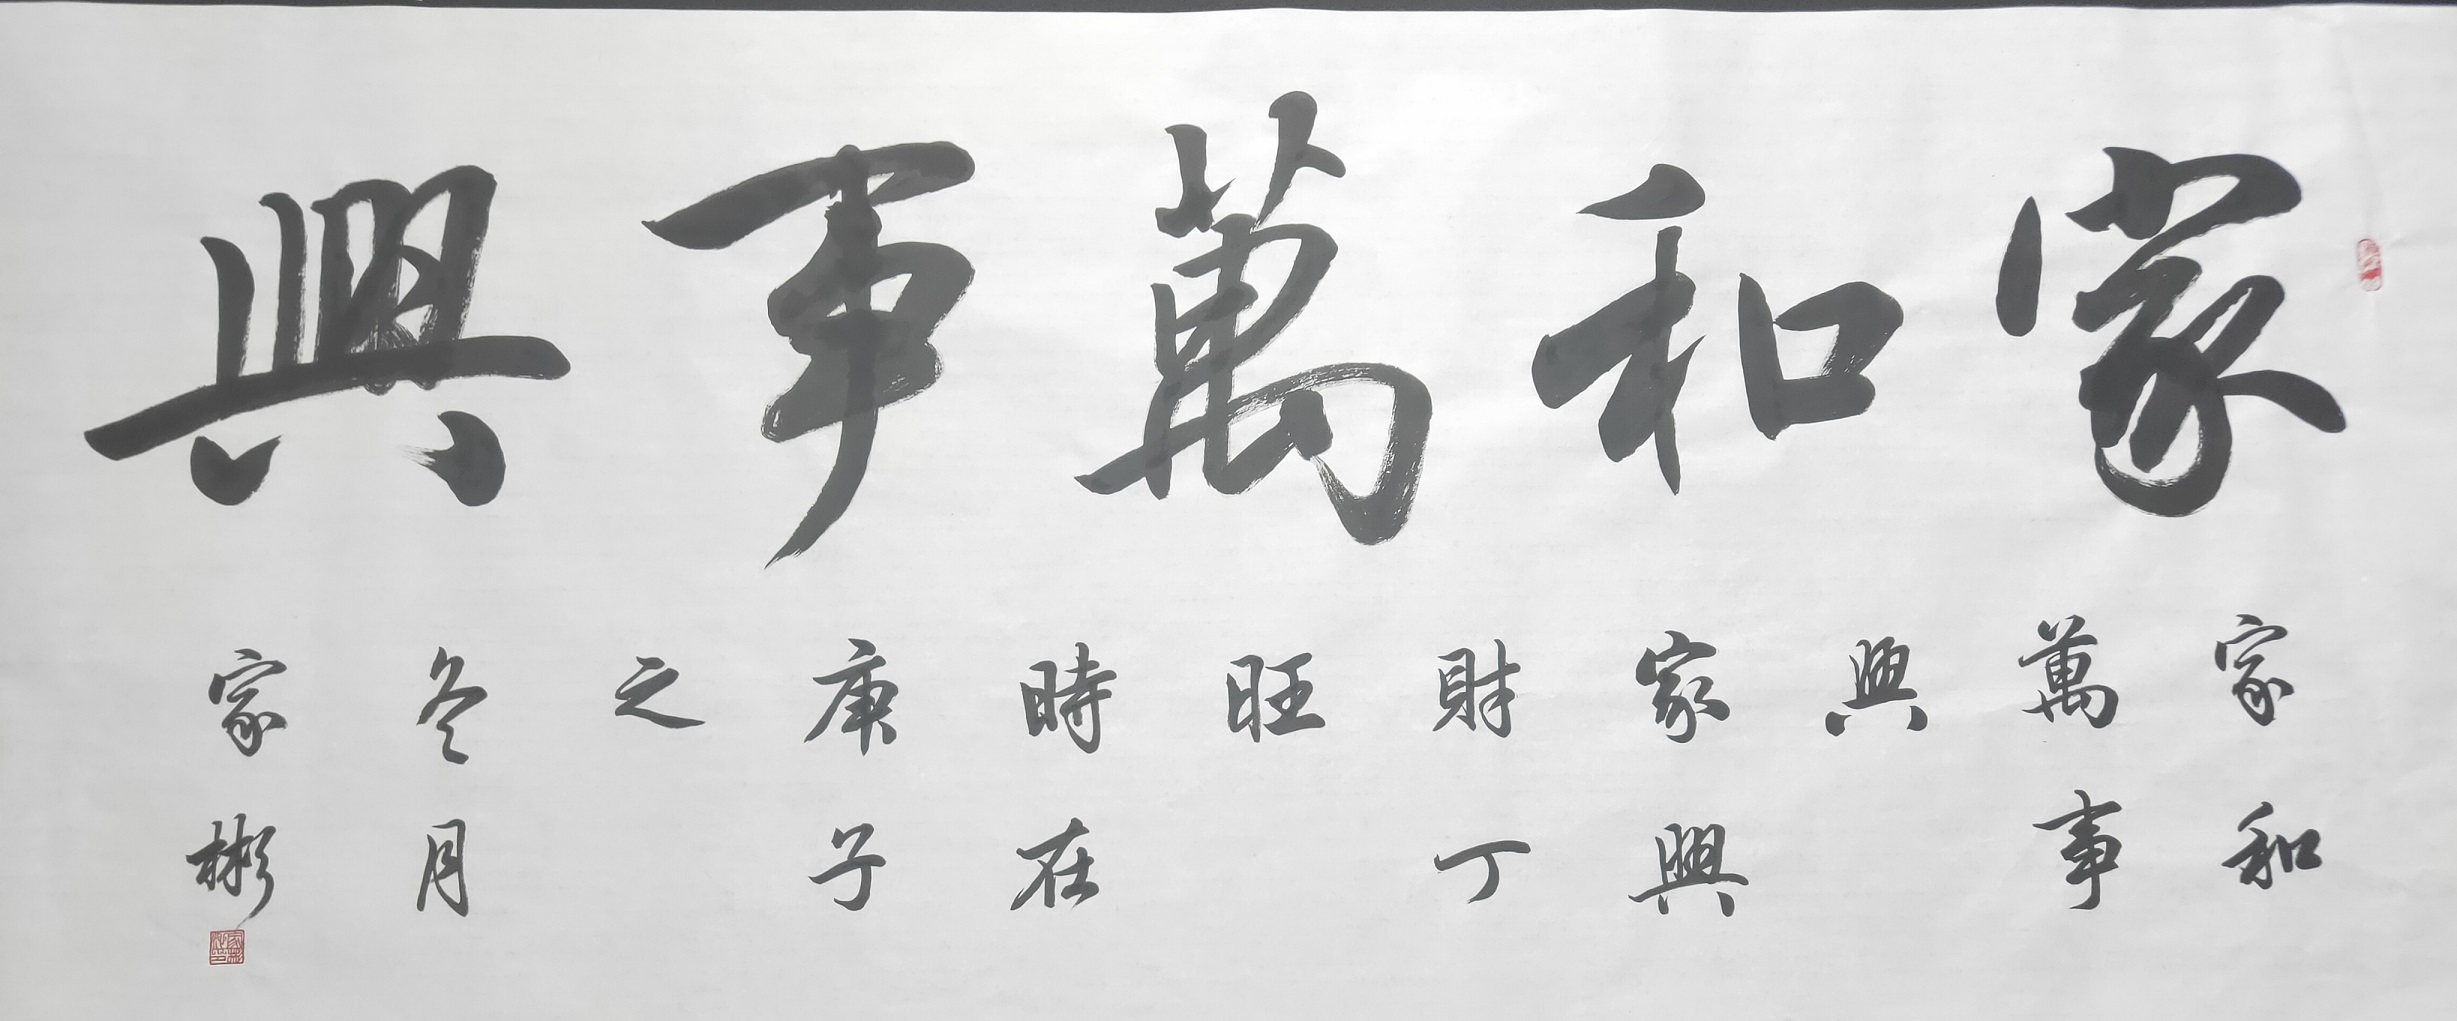 家和萬事興
家和
萬事
興
家興
財丁
旺
時在
庚子
之
冬月
家彬